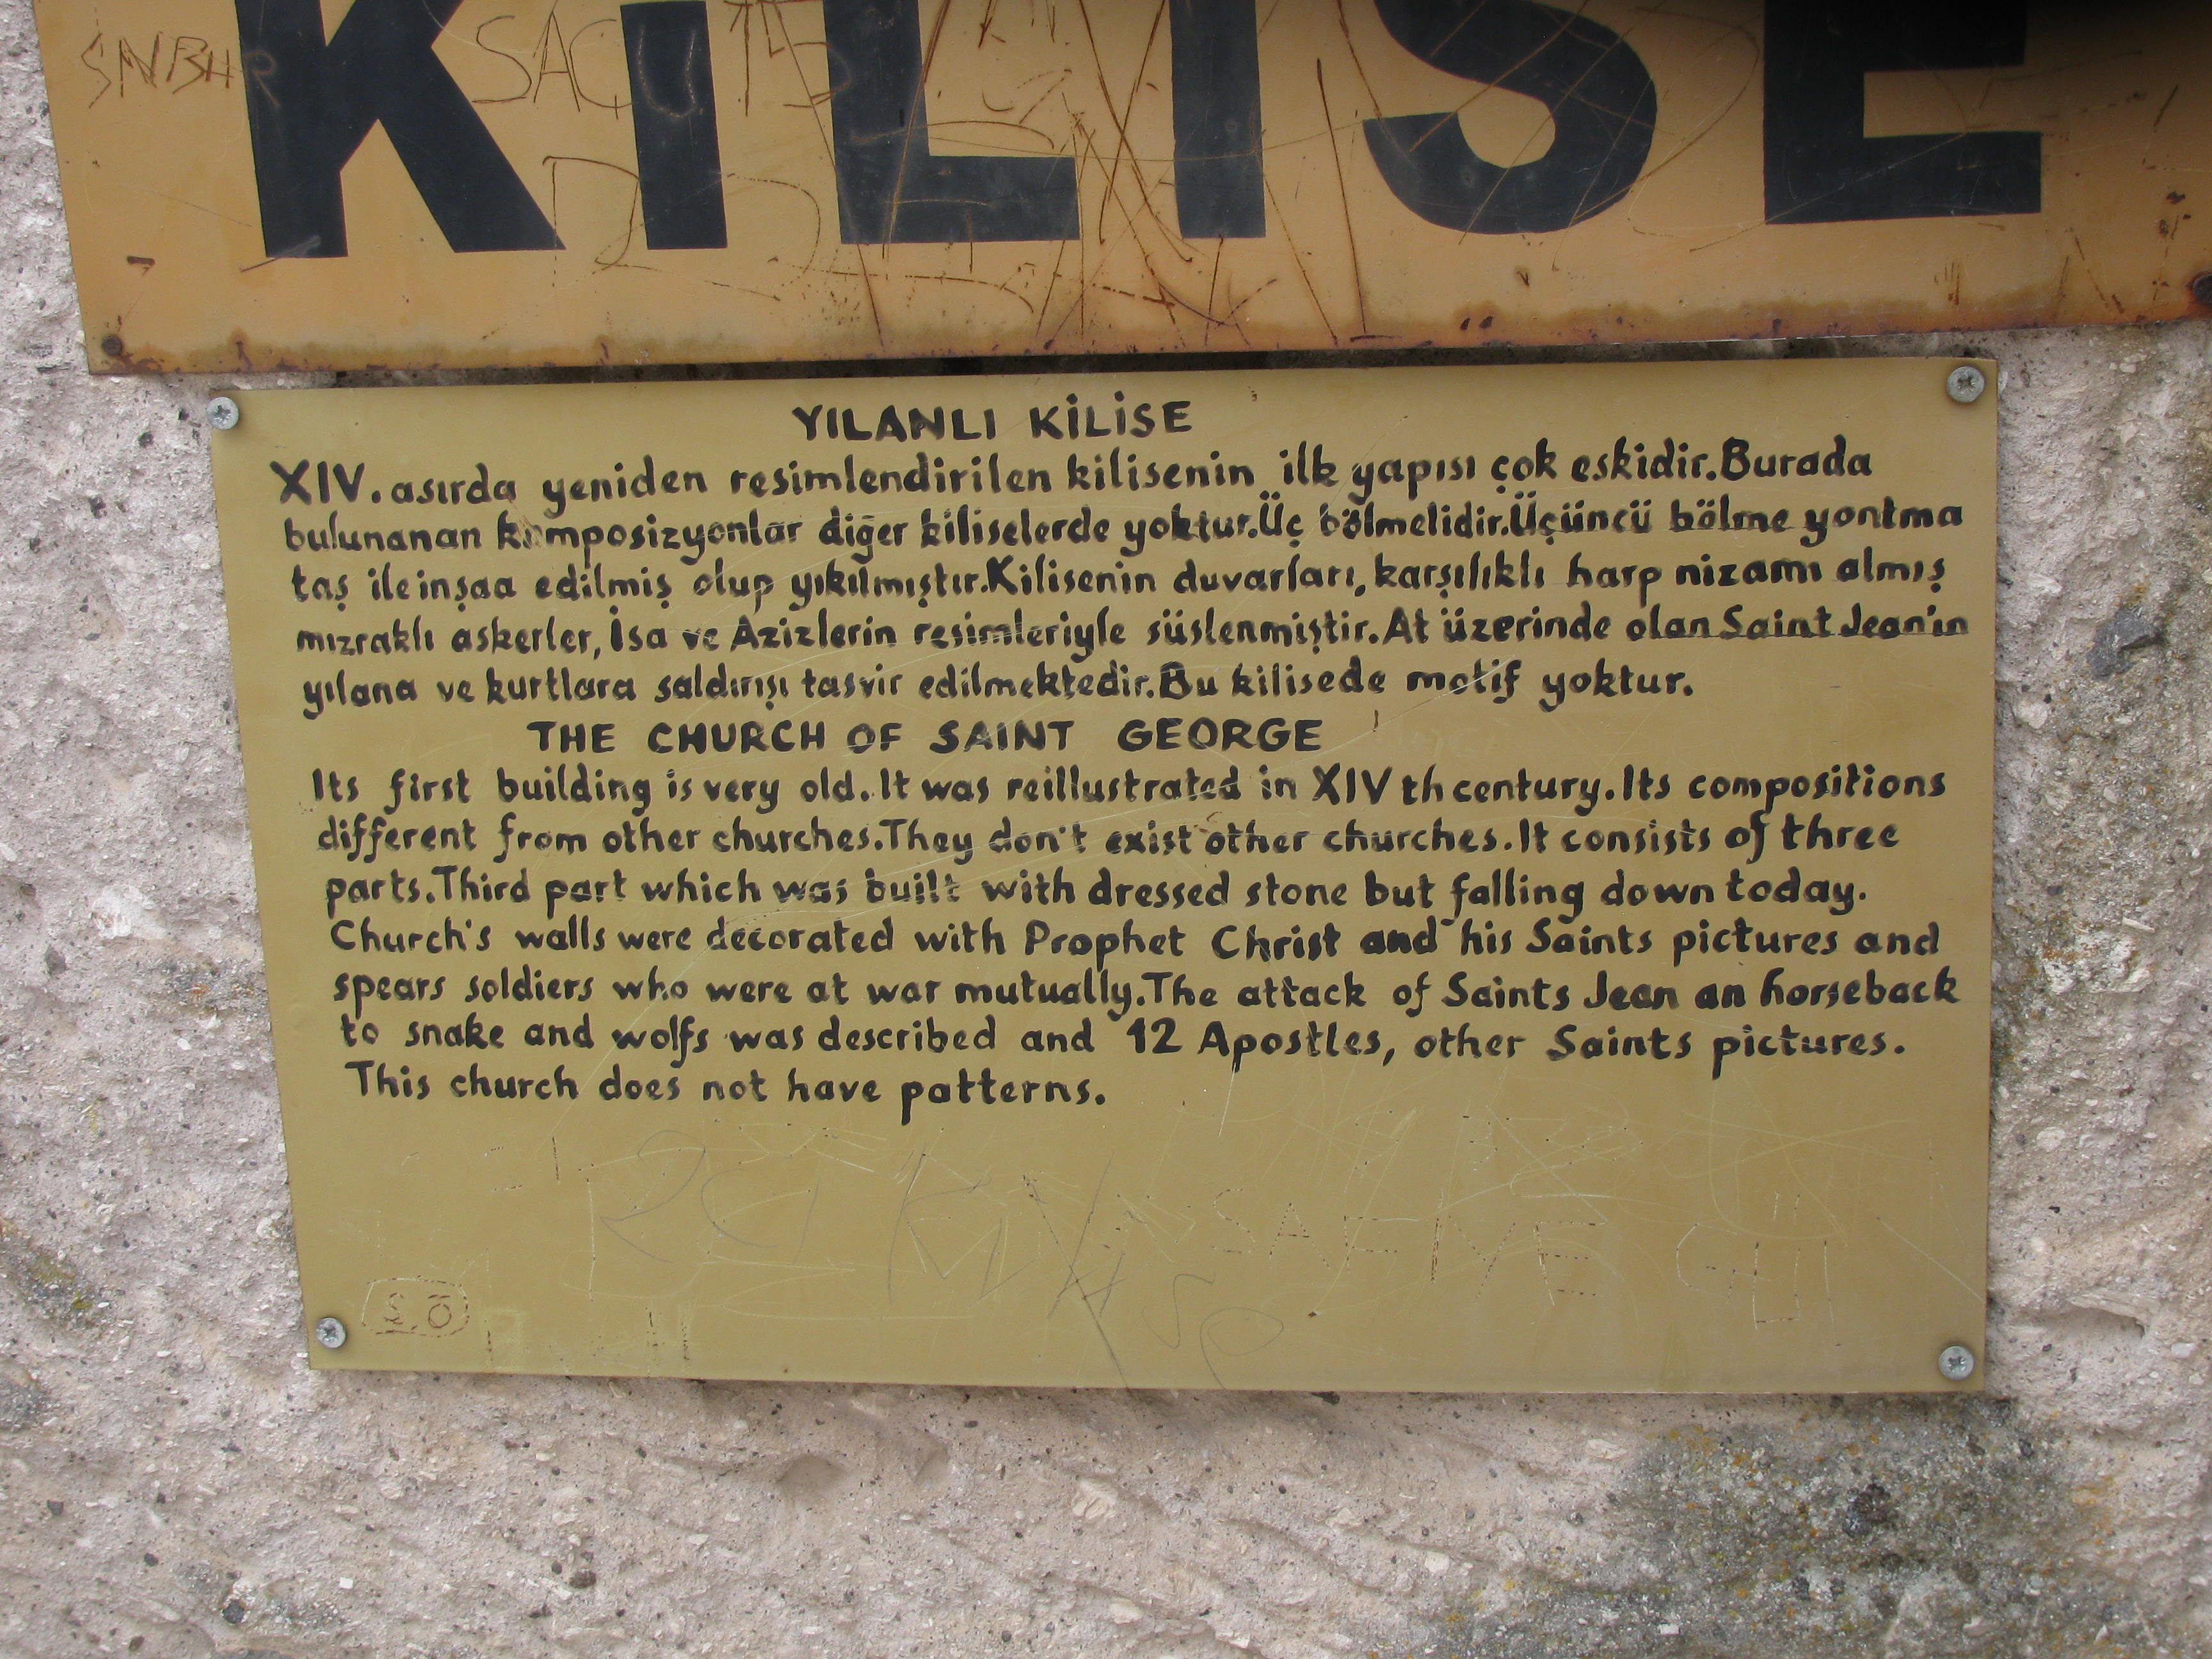 KİLİSE
SNBHR
YILANLI KİLİSE
XIV. asırda yeniden resimlendirilen kilisenin ilk yapısı çok eskidir. Burada
bulunanan komposizyonlar diğer kiliselerde yoktur. Üç bölmelidir. Üçüncü bölme yontma
taş ile inşaa edilmiş olup yıkılmıştır. Kilisenin duvarları, karşılıklı harp nizamı almış
mızraklı askerler, İsa ve Azizlerin resimleriyle süslenmiştir. At üzerinde olan Saint Jean'ın
yılana ve kurtlara saldırışı tasvir edilmektedir. Bu kilisede motif yoktur.
THE CHURCH OF SAINT GEORGE
Its first building is very old. It was reillustrated in XIV th century. Its compositions
different from other churches. They don't exist other churches. It consists of three
parts. Third part which was built with dressed stone but falling down today.
Church's walls were decorated with Prophet Christ and his Saints pictures and
spears soldiers who were at war mutually. The attack of Saints Jean an horseback
to snake and wolfs was described and 12 Apostles, other Saints pictures.
This church does not have patterns.
SAFİYE GÜL